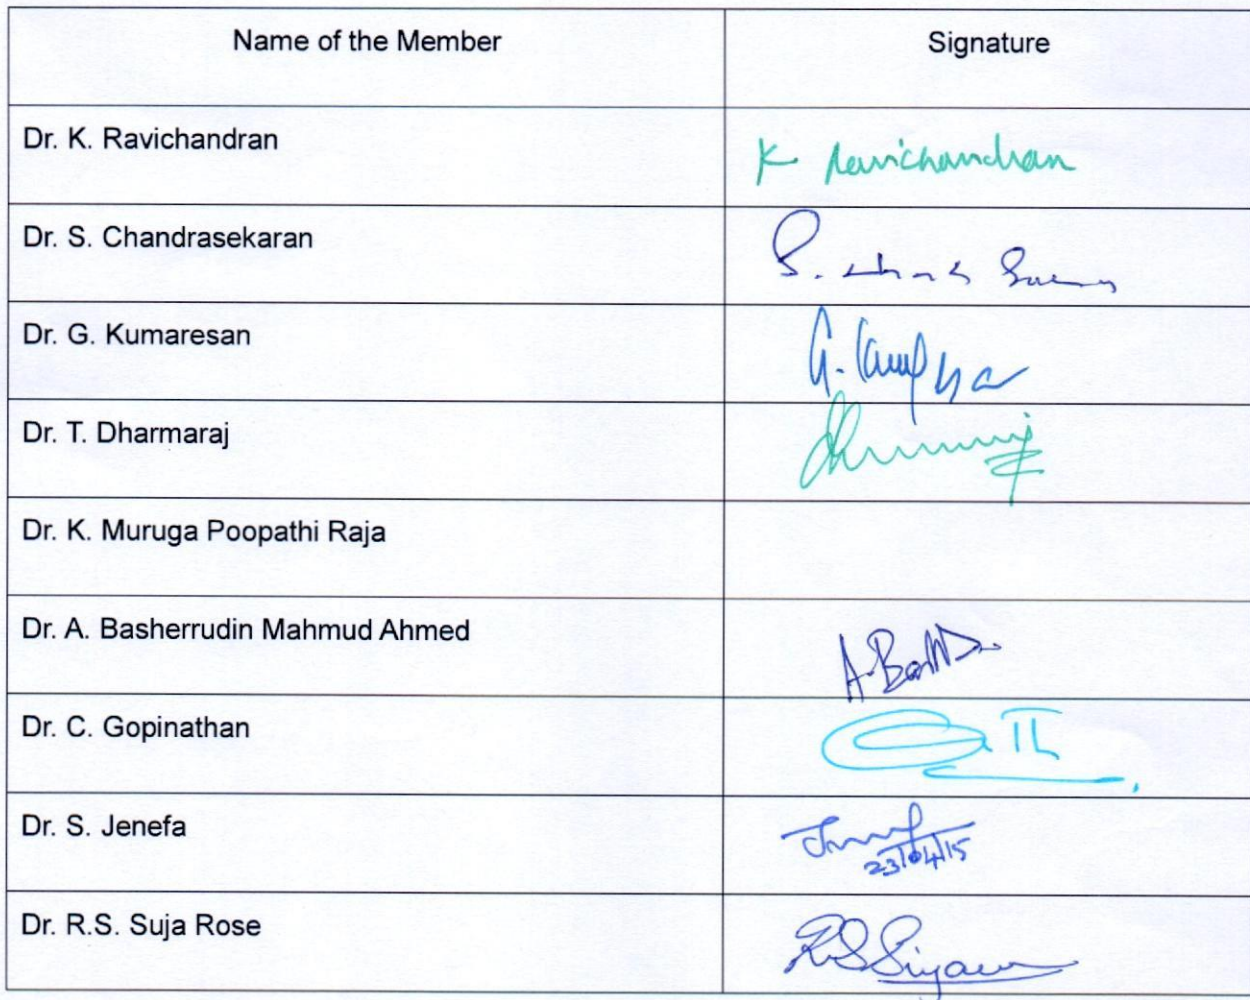 Name of the Member Signature
Dr. K. Ravichandran K Ravichandran
Dr. S. Chandrasekaran
Dr. G. Kumaresan
Dr. T. Dharmaraj
Dr. K. Muruga Poopathi Raja
Dr. A. Basherrudin Mahmud Ahmed
Dr. C. Gopinathan
Dr. S. Jenefa
23/04/15
Dr. R.S. Suja Rose